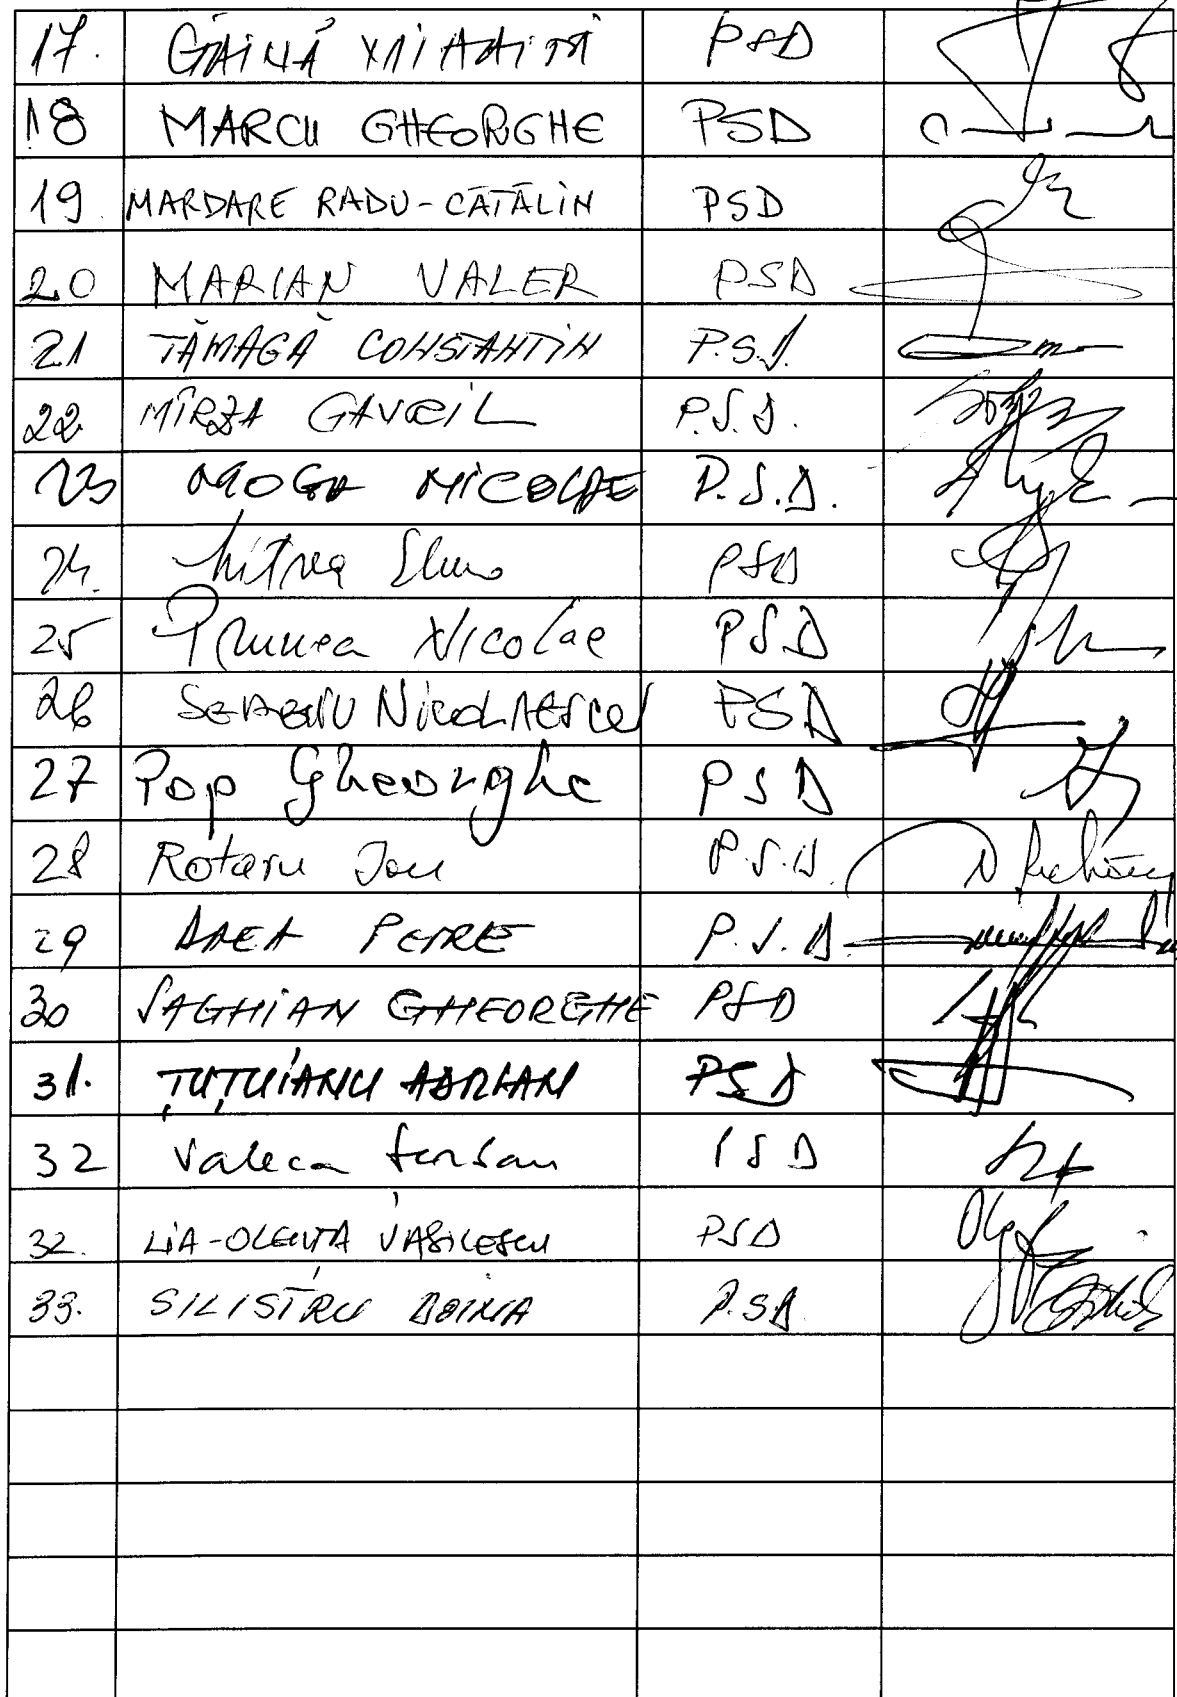 17. GĂINĂ PSD
18 MARCU GHEORGHE PSD
19. MARDARE RADU-CĂTĂLIN PSD
20 MARIAN VALER PSD
21 TĂMAGĂ CONSTANTIN P.S.D.
22 MÎRZA GAVRIL P.S.D.
23 MOGA NICOLAE P.S.D.
24. Mitrea PSD
25 Prunea Nicolae PSD
26 SERGIU NICOLAESCU PSD
27 Pop Gheorghe PSD
28 Rotaru Ion P.S.D.
29 DAEA PETRE P.S.D.
30 SAGHIAN GHEORGHE PSD
31. ȚUȚUIANU ADRIAN PSD
32 Valeca PSD
32. LIA-OLGUȚA VASILESCU PSD
33. SILISTRU DOINA P.SD.